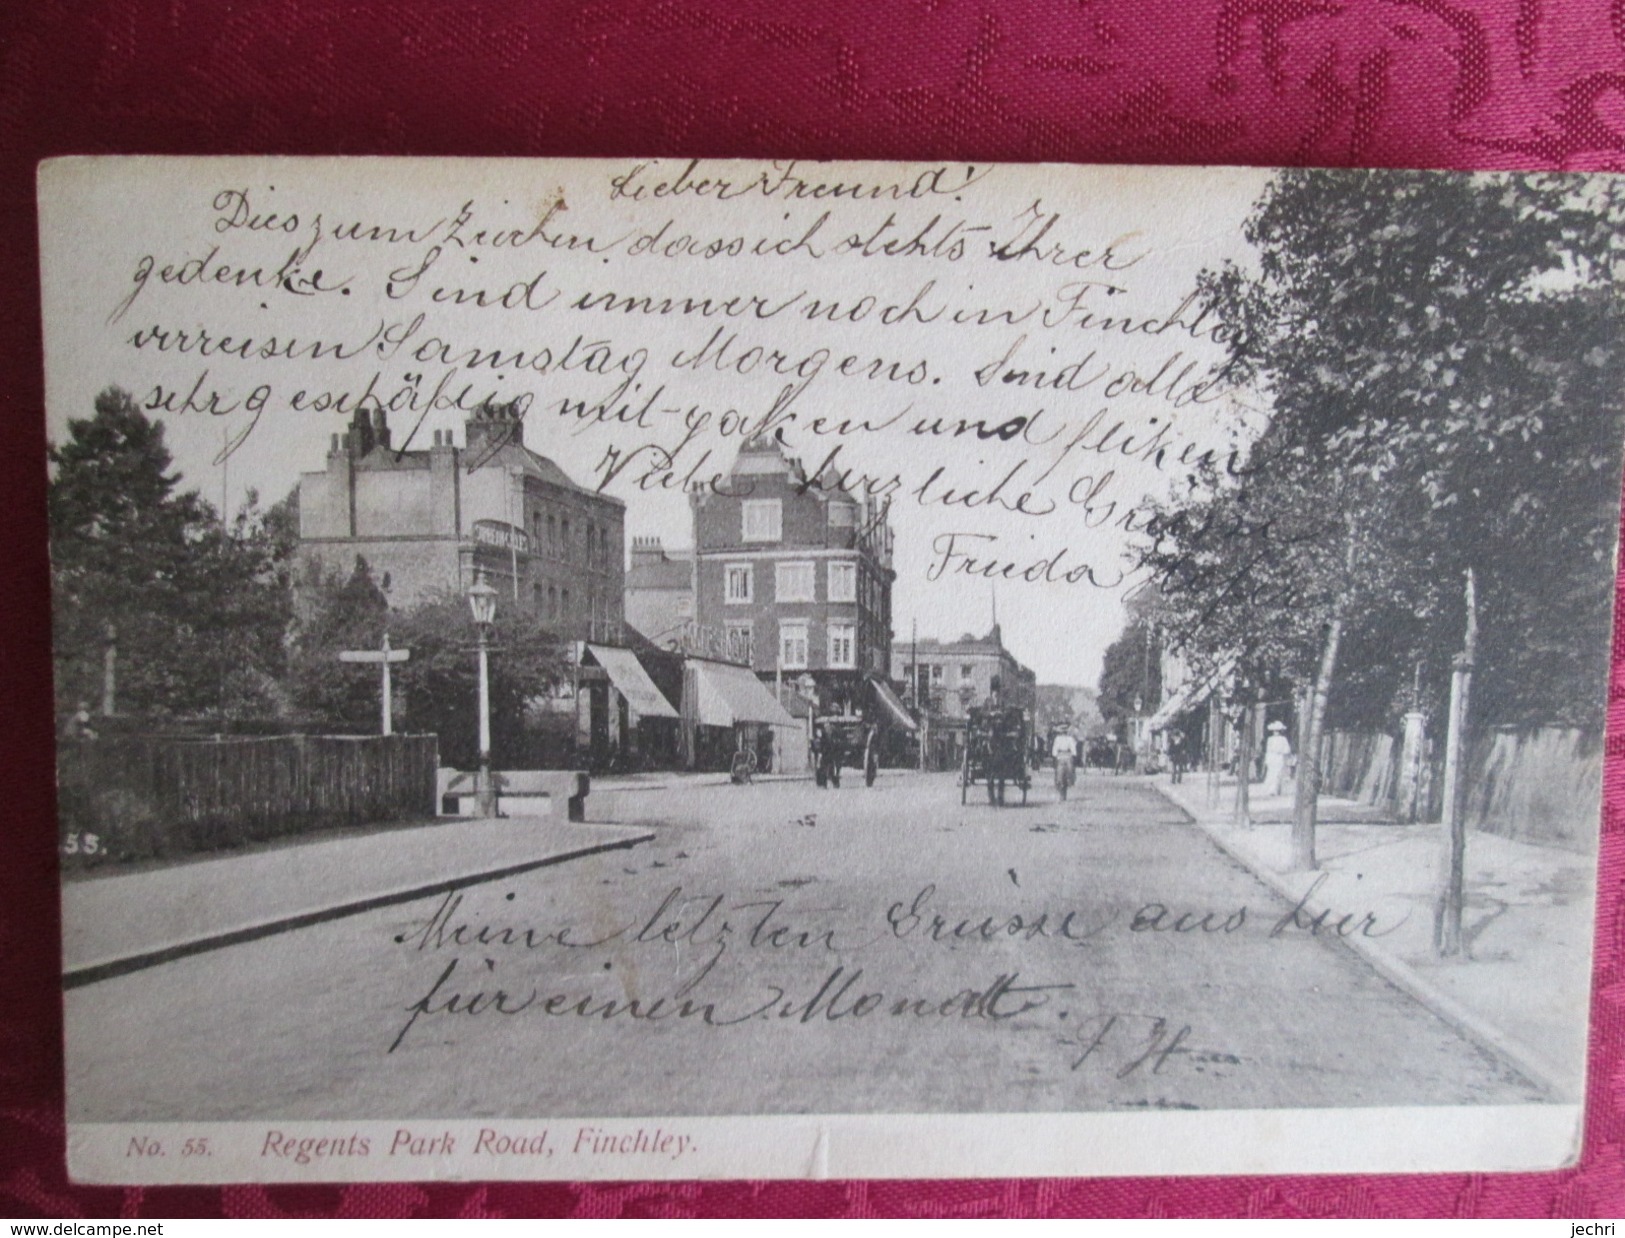 Lieber Freund!
Dies zum Zeichen dass ich stehts Ihrer
gedenke. Sind immer noch in Finchley
verreisen Samstag Morgens. Sind alle
sehr geschäftig mit paken und fliken
Viele herzliche Grüsse
Frieda
Meine letzten Grüsse aus hier
für einen Monatt.
F H
55.
No. 55. Regents Park Road, Finchley.
www.delcampe.net
jechri